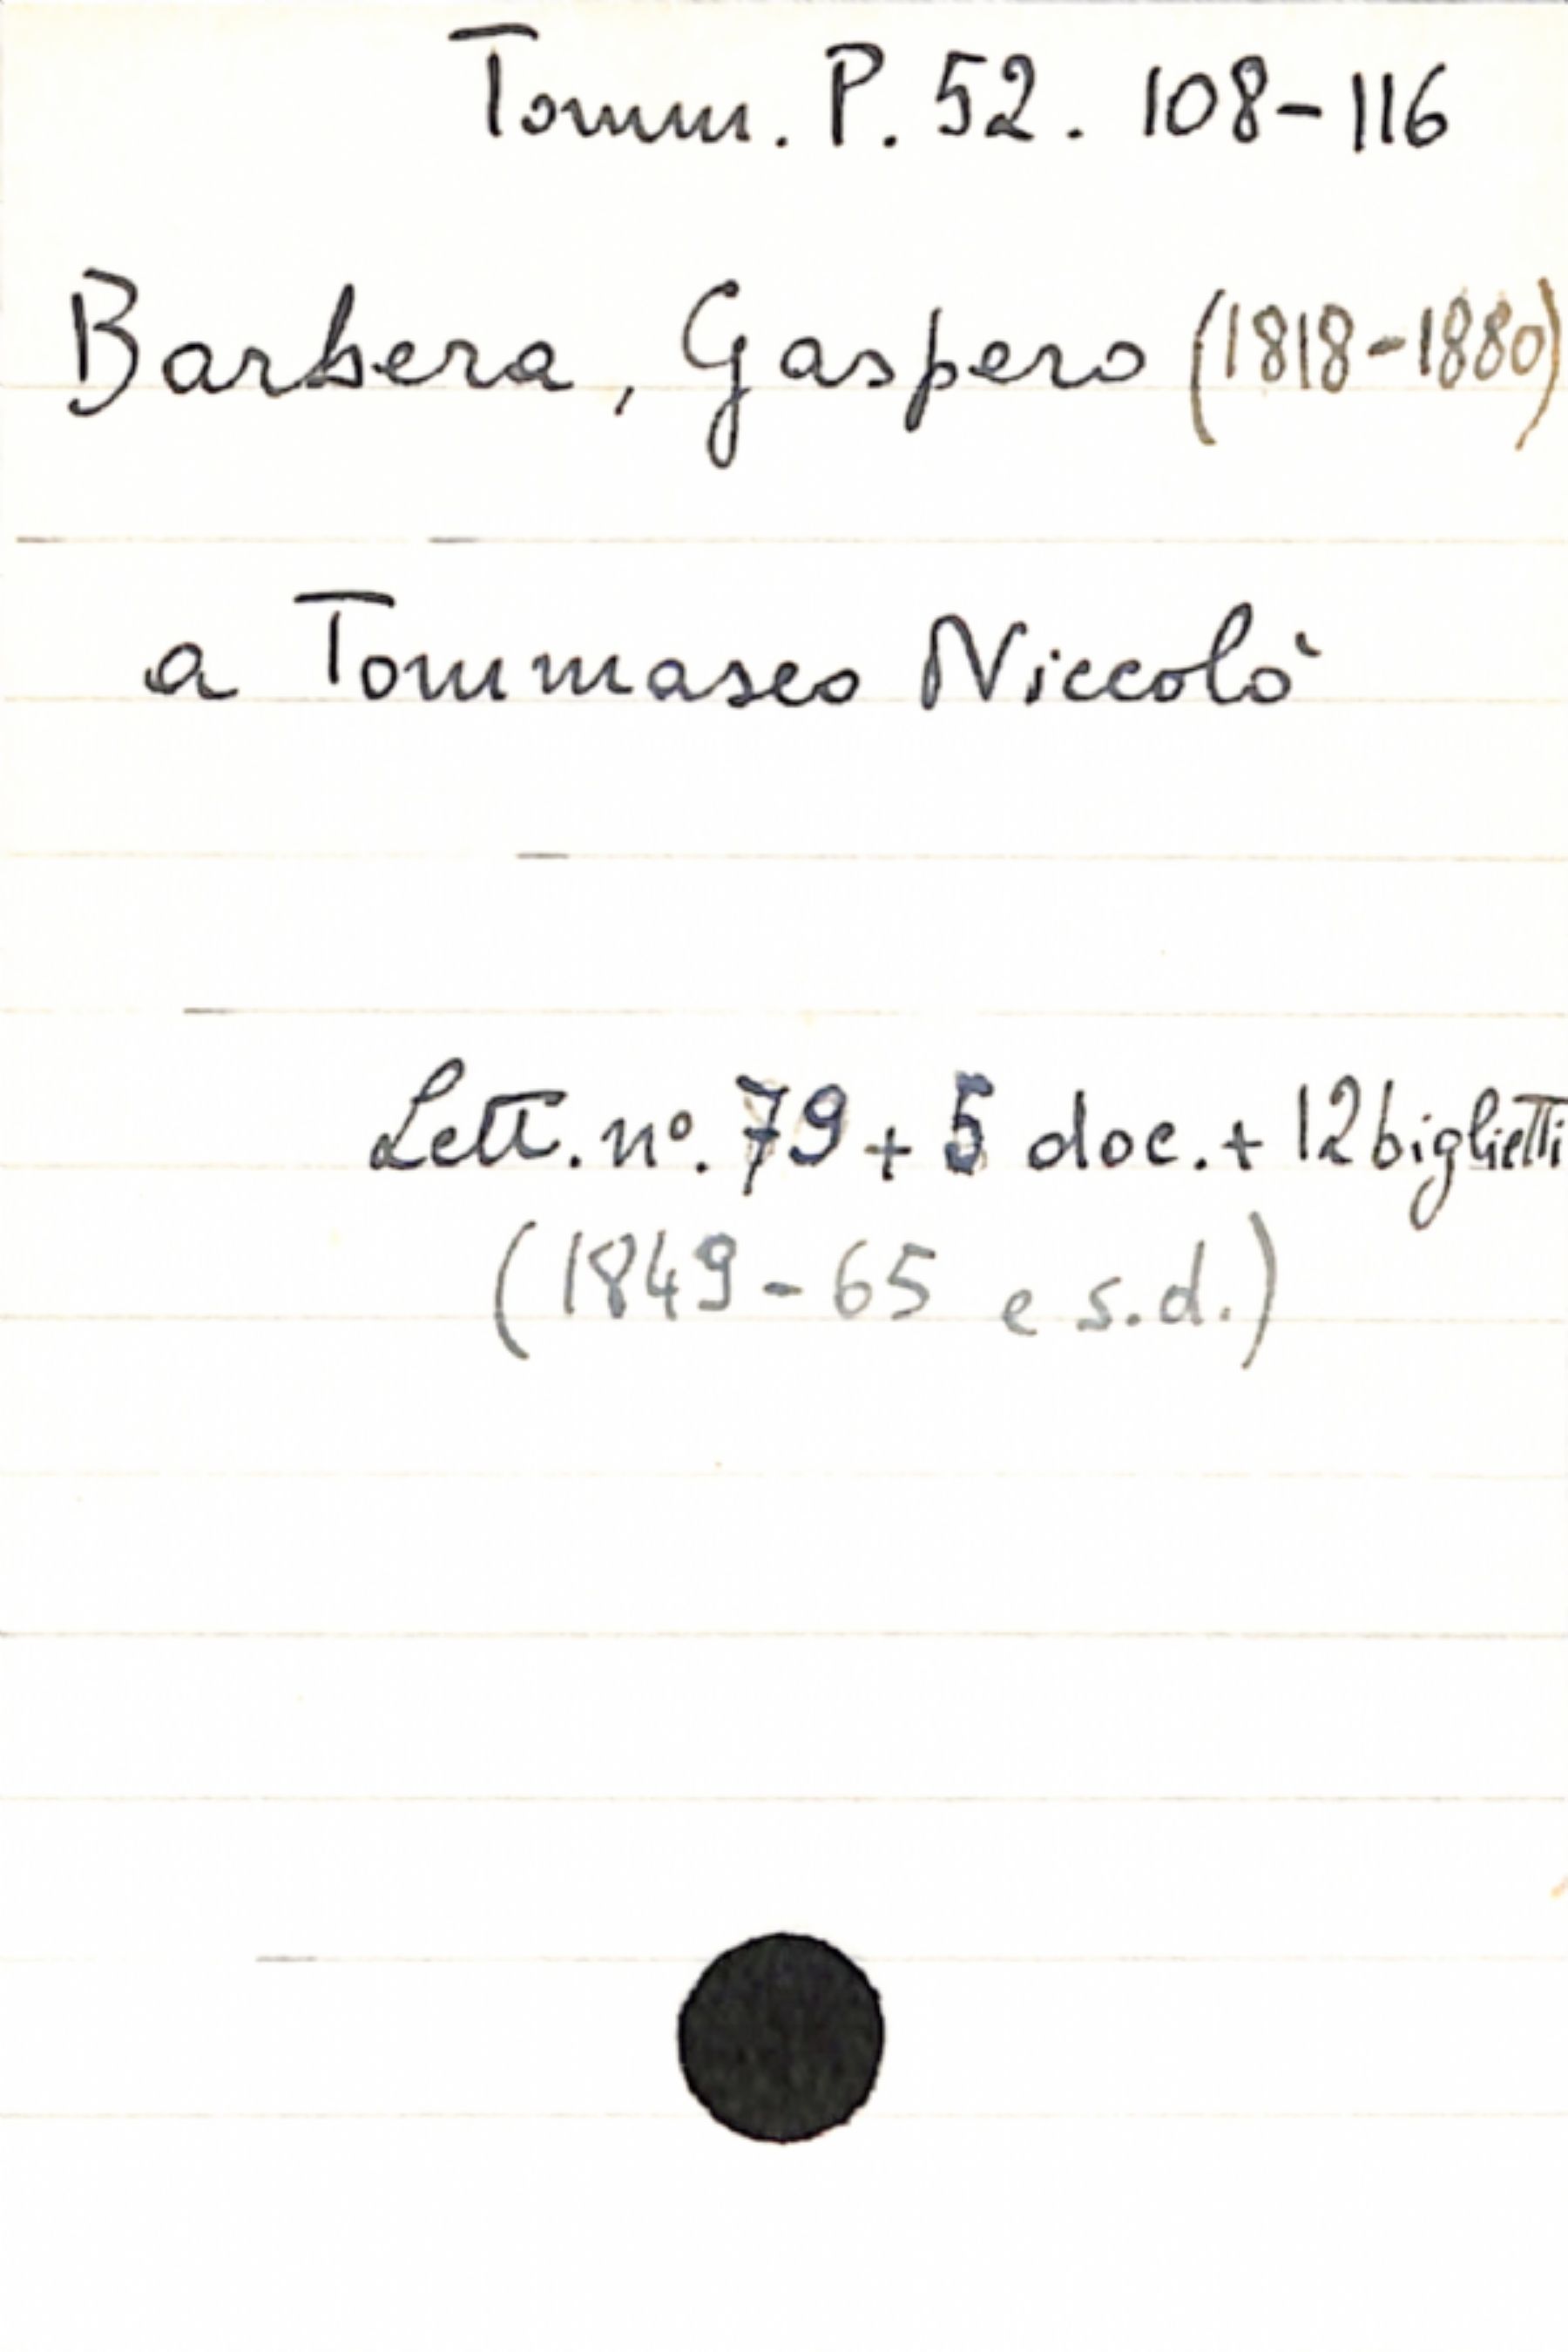 Tomm. P. 52. 108-116
Barbera, Gaspero (1818-1880)
a Tommaseo Niccolò
Lett. nº. 79 + 5 doc. + 12 biglietti
(1849-65 e s.d.)